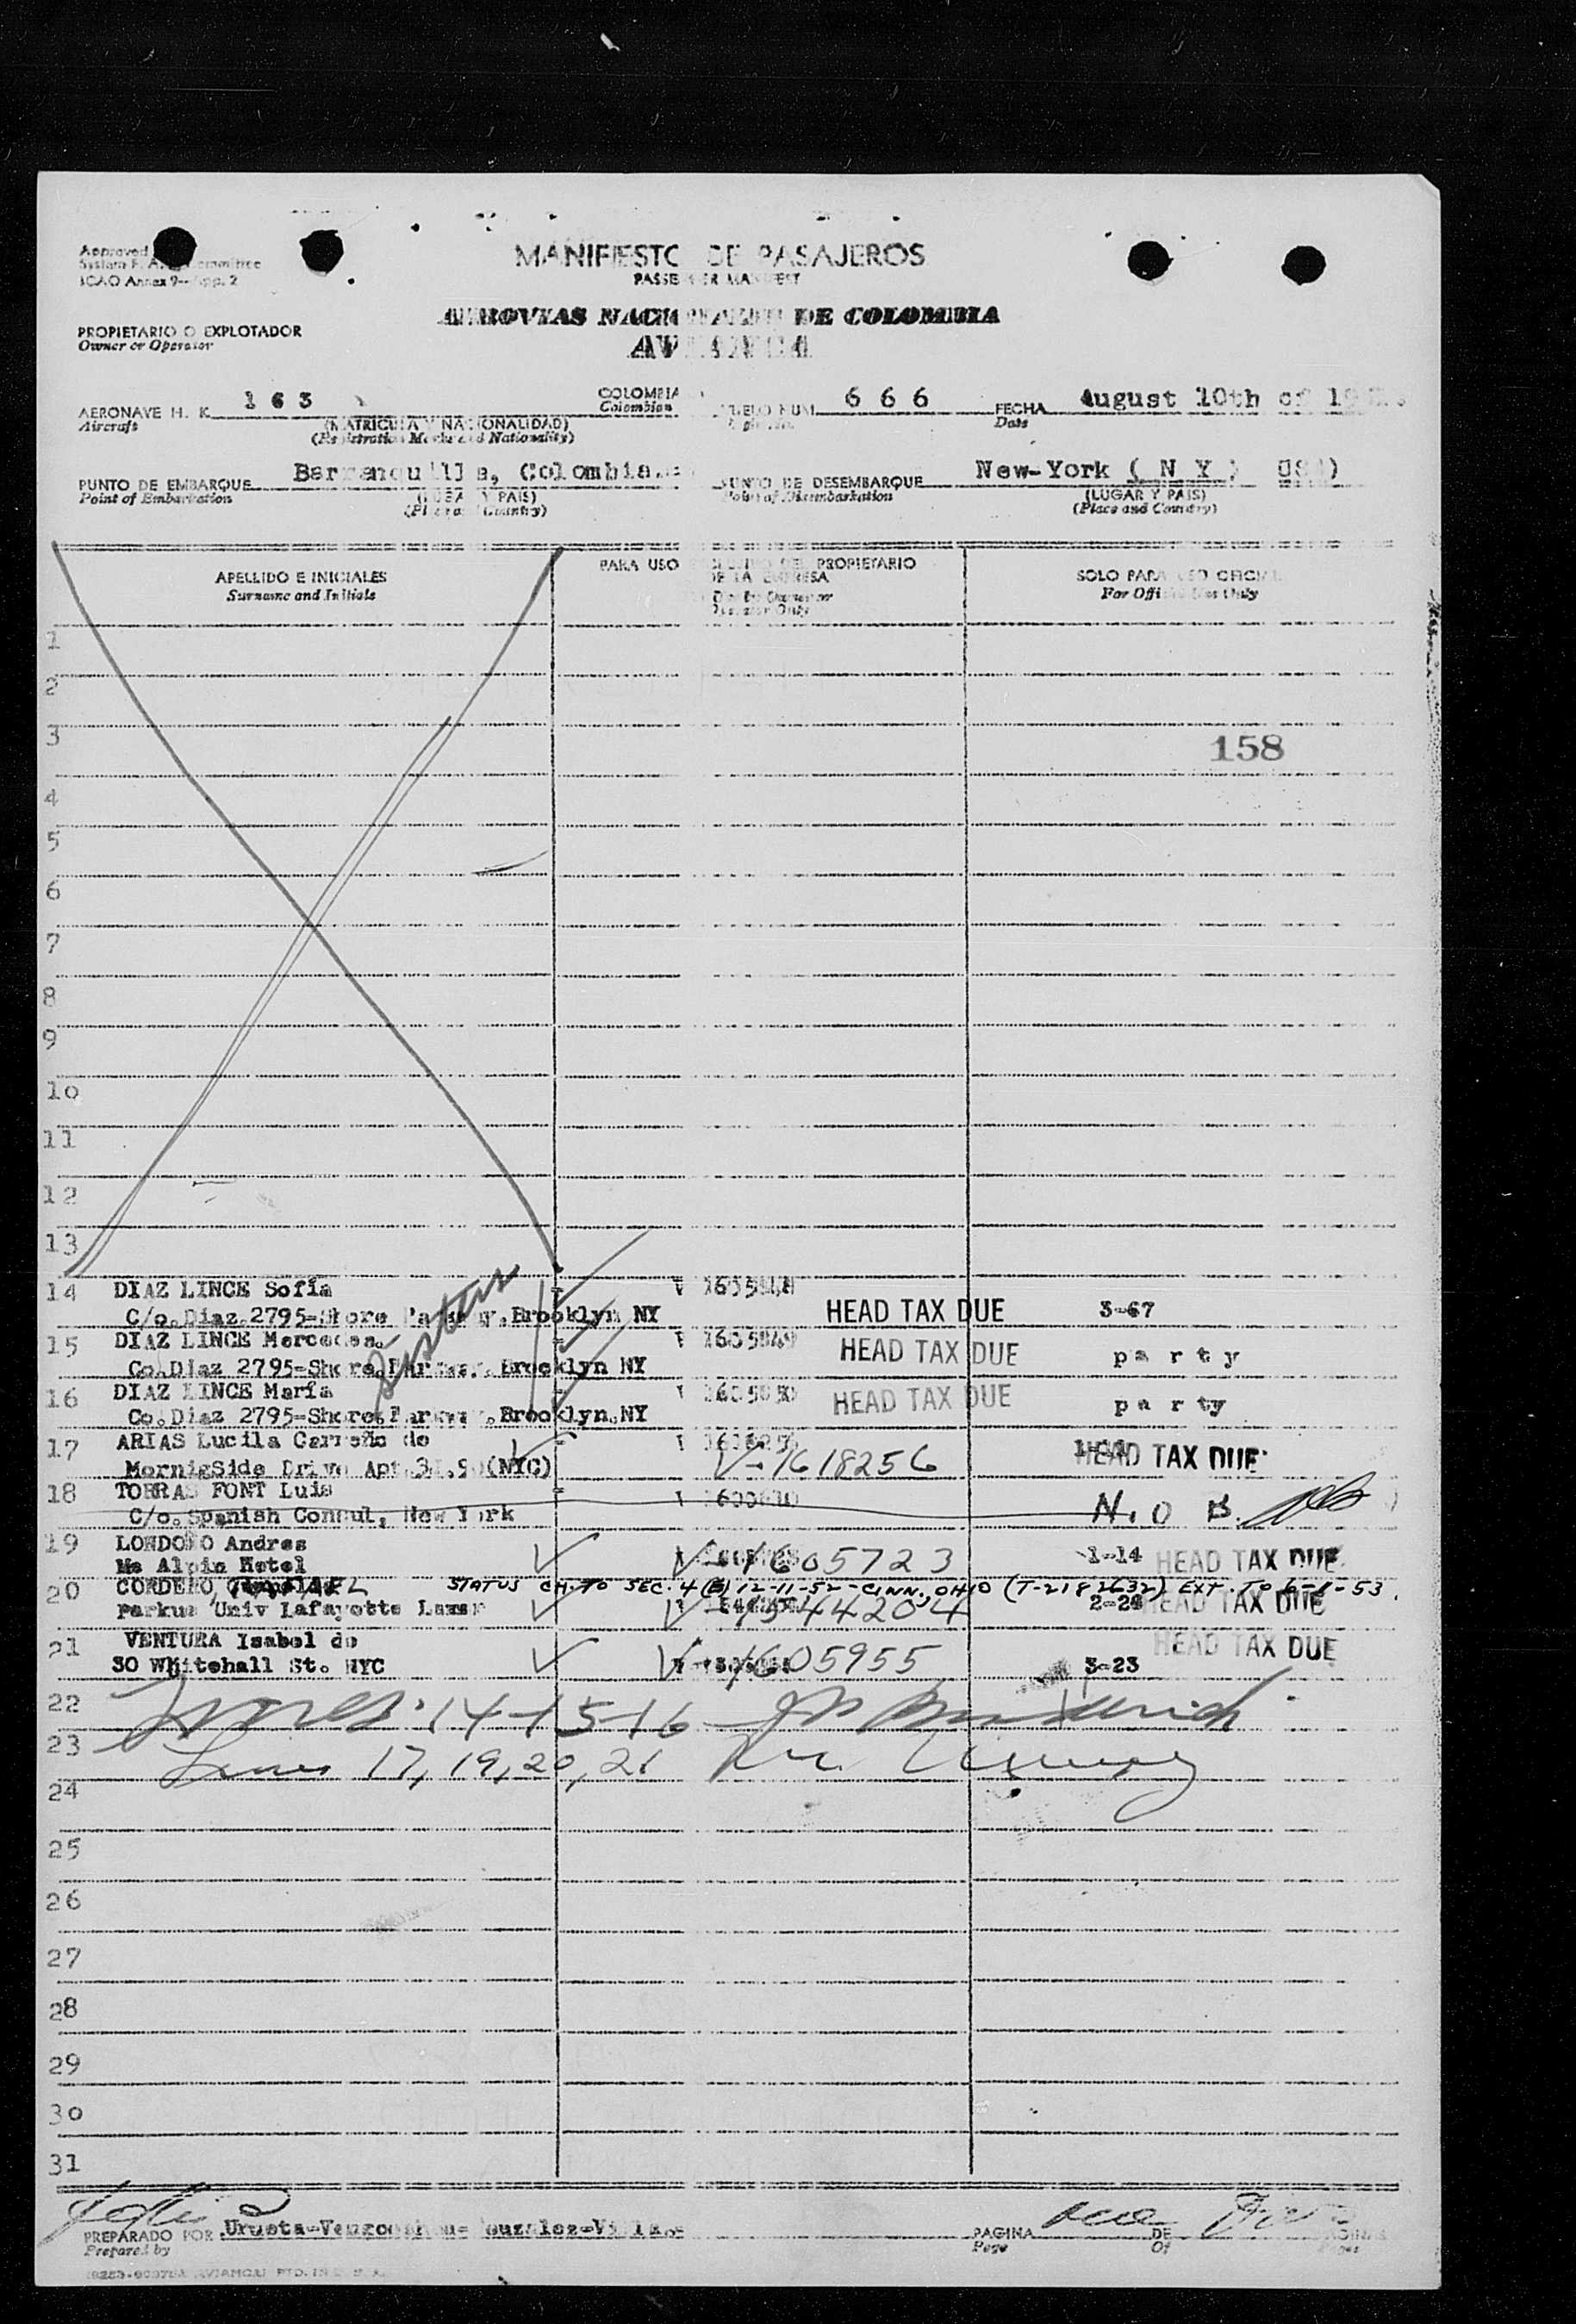 Approved
ICAO Annex 9-
MANIFIESTO DE PASAJEROS
PASSENGER MANIFEST
PROPIETARIO O EXPLOTADOR
Owner or Operator
AEROVIAS NACIONALES DE COLOMBIA
AVIANCA
AERONAVE H. K. 163
Aircraft
(MATRICULA Y NACIONALIDAD)
(Registration Marks and Nationality)
COLOMBIA
Colombian
VUELO NUM. 666
FECHA August 10th of
Date
PUNTO DE EMBARQUE Barranquilla, Colombia.
Point of Embarkation
(LUGAR Y PAIS)
(Place and Country)
PUNTO DE DESEMBARQUE New-York ( N Y )
Point of Disembarkation
(LUGAR Y PAIS)
(Place and Country)
APELLIDO E INICIALES
Surname and Initials
PARA USO EXCLUSIVO DEL PROPIETARIO
DE LA EMPRESA
SOLO PARA USO OFICIAL
For Official Use Only
1
2
3
158
4
5
6
7
8
9
10
11
12
13
14 DIAZ LINCE Sofía
C/o. Diaz. 2795-Shore Parkway. Brooklyn NY HEAD TAX DUE 3-67
Sisters
15 DIAZ LINCE Mercedes.
Co. Diaz 2795-Shore Parkway. Brooklyn NY HEAD TAX DUE party
16 DIAZ LINCE María
Co. Diaz 2795-Shore Parkway. Brooklyn.NY HEAD TAX DUE party
17 ARIAS Lucila Carreño de
MornigSide Drive Apt. (NYC) V-1618256 HEAD TAX DUE
18 TORRAS FONT Luis
C/o. Spanish Consul, New York N.O B.
19 LONDOÑO Andres
Mc Alpin Hotel V-1605723 1-14 HEAD TAX DUE
20 CORDERO, STATUS CH. TO SEC. 4 (E) 12-11-52-CINN, OHIO (T-2182632) EXT. TO 6-1-53.
Parkus Univ Lafayette V-1544204 2-28 HEAD TAX DUE
21 VENTURA Isabel de
30 Whitehall St. NYC V-1605955 3-23 HEAD TAX DUE
22 Lines 14-15-16
23 Lines 17, 19, 20, 21
24
25
26
27
28
29
30
31
PREPARADO POR
Prepared by
PAGINA DE
Page Of